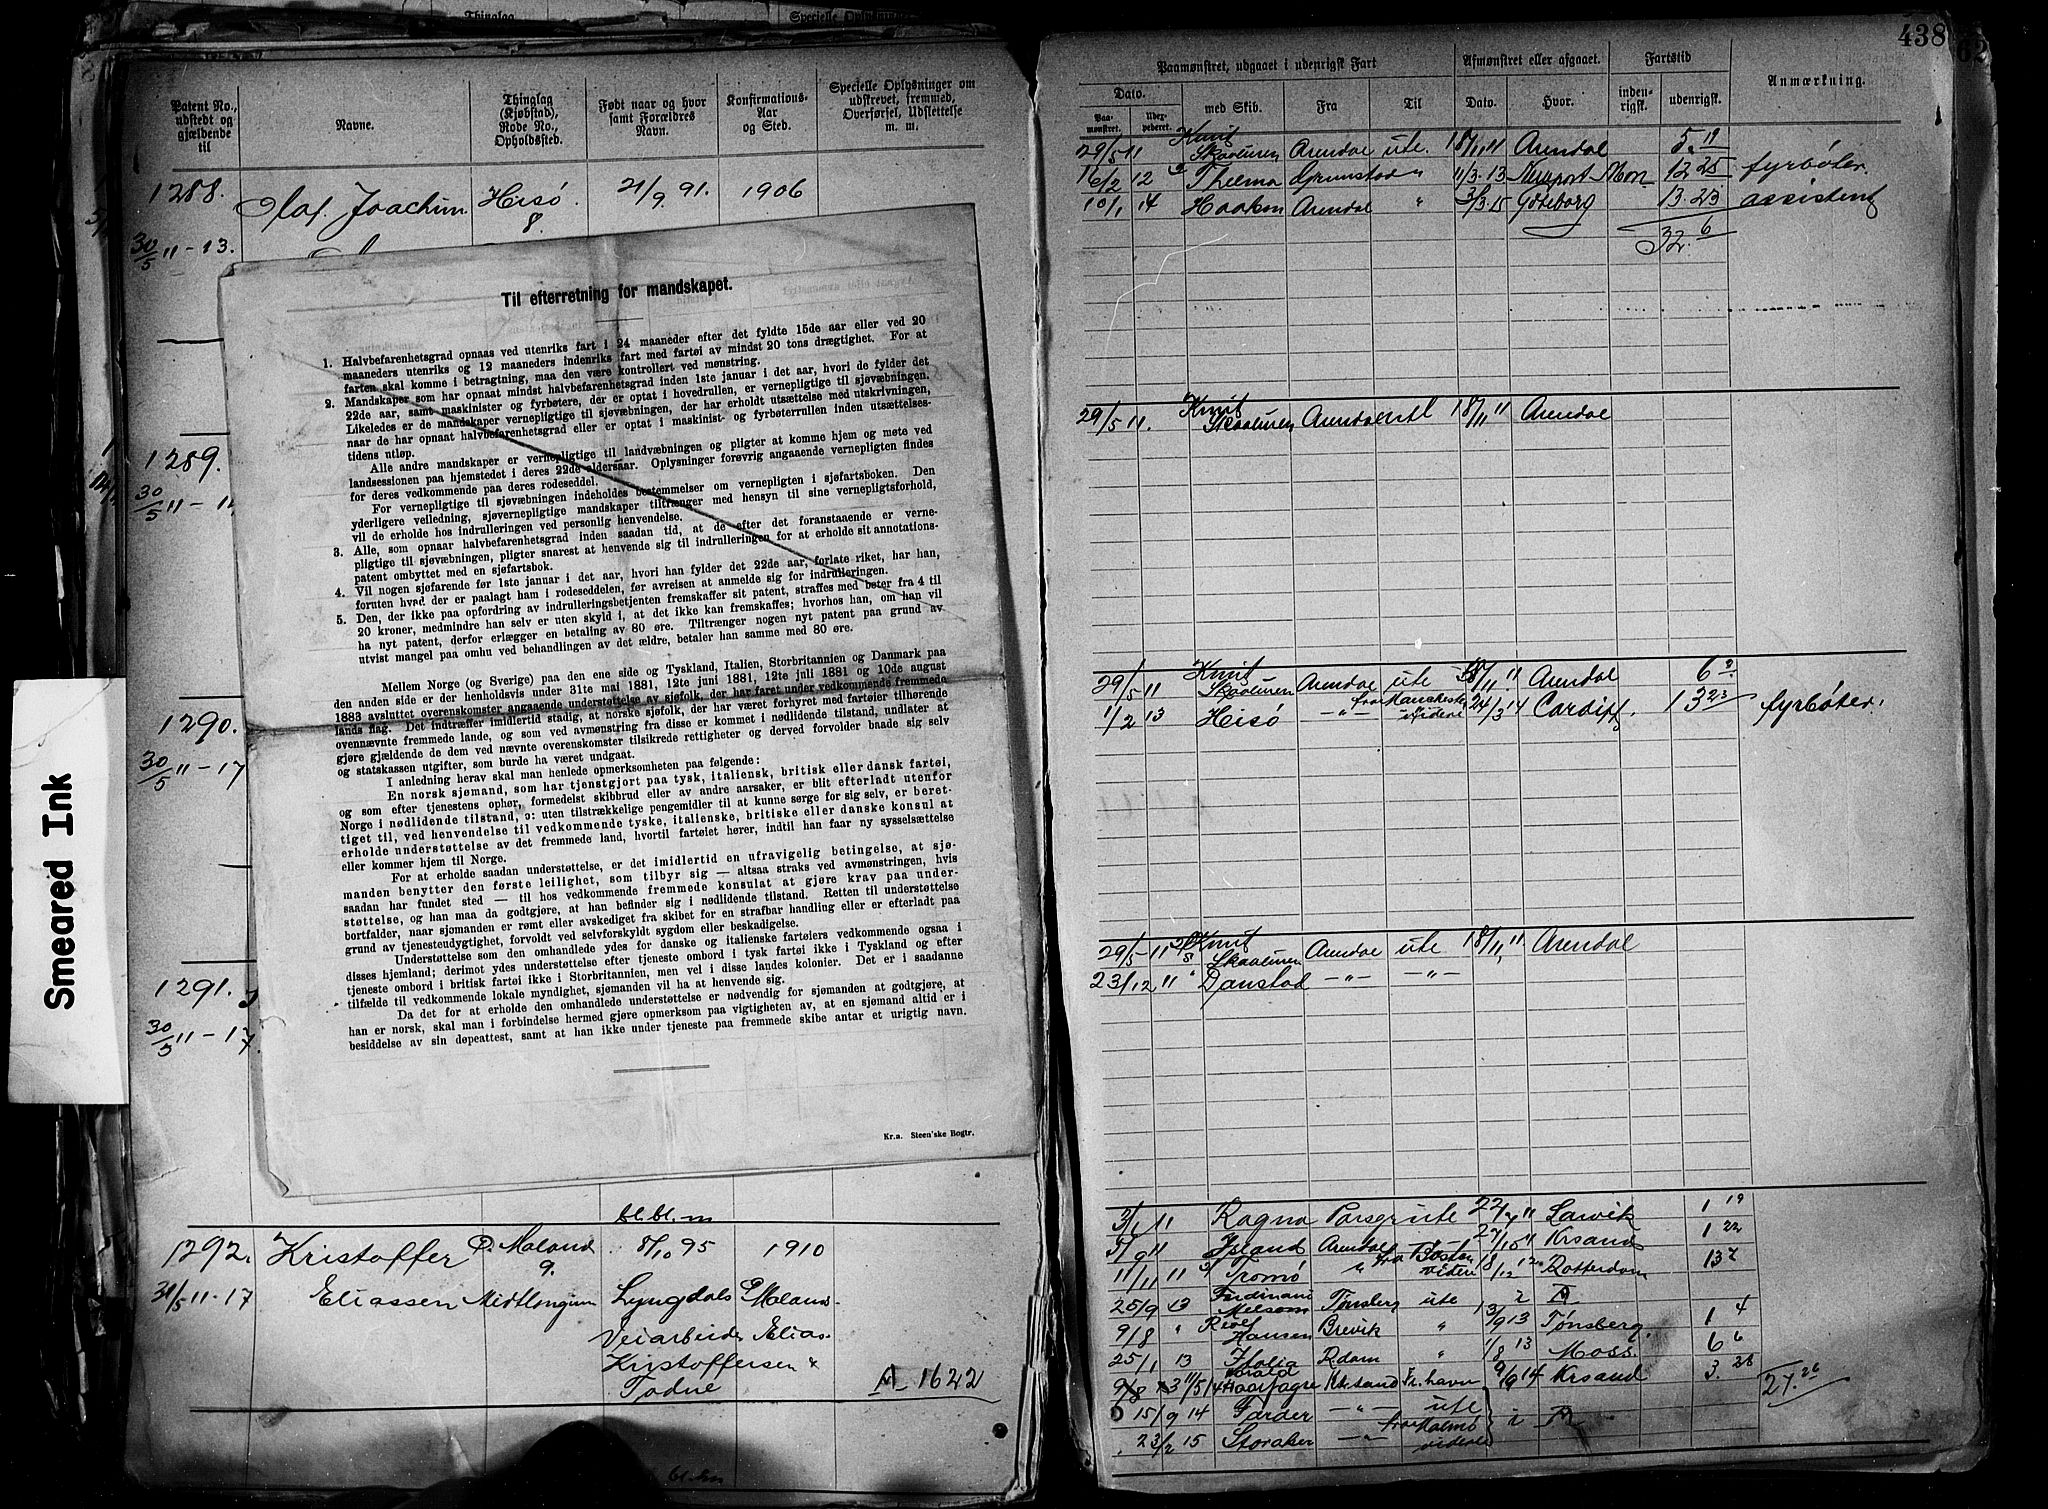 Thinglag
Specielle Oplysninger
438
62
Patent No.,
udstedt og
gjældende
til
Navne.
Thinglag
(Kjøbstad),
Rode No.,
Opholdssted.
Født naar og hvor
samt Forældres
Navn.
Konfirmations-
Aar
og Sted.
Specielle Oplysninger om
udskrevet, fremmed,
Overførsel, Udslettelse
m. m.
1288.
Olaf Joachim
Hisø
8.
21/9 91.
1906
30/5 11-13.
1289.
30/5 11-1
1290.
30/5 11-17
1291.
30/5 11-17.
Til efterretning for mandskapet.
1. Halvbefarenhetsgrad opnaas ved utenriks fart i 24 maaneder efter det fyldte 15de aar eller ved 20
maaneders utenriks og 12 maaneders indenriks fart med fartøi av mindst 20 tons drægtighet. For at
farten skal komme i betragtning, maa den være kontrollert ved mønstring.
2. Mandskaper som har opnaat mindst halvbefarenhetsgrad inden 1ste januar i det aar, hvori de fylder det
22de aar, samt maskinister og fyrbøtere, der er optat i hovedrullen, er vernepligtige til sjøvæbningen.
Likeledes er de mandskaper vernepligtige til sjøvæbningen, der har erholdt utsættelse med utskrivningen,
naar de har opnaat halvbefarenhetsgrad eller er optat i maskinist- og fyrbøterrullen inden utsættelses-
tidens utløp.
Alle andre mandskaper er vernepligtige til landvæbningen og pligter at komme hjem og møte ved
landsessionen paa hjemstedet i deres 22de aldersaar. Oplysninger forøvrig angaaende vernepligten findes
for deres vedkommende paa deres rodeseddel.
For vernepligtige til sjøvæbningen indeholdes bestemmelser om vernepligten i sjøfartsboken. Den
yderligere veiledning, sjøvernepligtige mandskaper tiltrænger med hensyn til sine vernepligtsforhold,
vil de erholde hos indrulleringen ved personlig henvendelse.
3. Alle, som opnaar halvbefarenhetsgrad inden saadan tid, at de efter det foranstaaende er verne-
pligtige til sjøvæbningen, pligter snarest at henvende sig til indrulleringen for at erholde sit annotations-
patent ombyttet med en sjøfartsbok.
4. Vil nogen sjøfarende før 1ste januar i det aar, hvori han fylder det 22de aar, forlate riket, har han,
foruten hvad der er paalagt ham i rodeseddelen, før avreisen at anmelde sig for indrulleringen.
5. Den, der ikke paa opfordring av indrulleringsbetjenten fremskaffer sit patent, straffes med bøter fra 4 til
20 kroner, medmindre han selv er uten skyld i, at det ikke kan fremskaffes; hvorhos han, om han vil
ha nyt patent, derfor erlægger en betaling av 80 øre. Tiltrænger nogen nyt patent paa grund av
utvist mangel paa omhu ved behandlingen av det ældre, betaler han samme med 80 øre.
Mellem Norge (og Sverige) paa den ene side og Tyskland, Italien, Storbritannien og Danmark paa
den anden side er der henholdsvis under 31te mai 1881, 12te juni 1881, 12te juli 1881 og 10de august
1883 avsluttet overenskomster angaaende understøttelse av sjøfolk, der har faret under vedkommende fremmede
lands flag. Det indtræffer imidlertid stadig, at norske sjøfolk, der har været forhyret med fartøier tilhørende
ovennævnte fremmede lande, og som ved avmønstring fra disse er kommet i nødlidende tilstand, undlater at
gjøre gjældende de dem ved nævnte overenskomster tilsikrede rettigheter og derved forvolder baade sig selv
og statskassen utgifter, som burde ha været undgaat.
I anledning herav skal man henlede opmerksomheten paa følgende:
En norsk sjømand, som har tjenstgjort paa tysk, italiensk, britisk eller dansk fartøi,
og som efter tjenestens ophør, formedelst skibbrud eller av andre aarsaker, er blit efterladt utenfor
Norge i nødlidende tilstand, ɔ: uten tilstrækkelige pengemidler til at kunne sørge for sig selv, er beret-
tiget til, ved henvendelse til vedkommende tyske, italienske, britiske eller danske konsul at
erholde understøttelse av det fremmede land, hvortil fartøiet hører, indtil han faar ny sysselsættelse
eller kommer hjem til Norge.
For at erholde saadan understøttelse, er det imidlertid en ufravigelig betingelse, at sjø-
manden benytter den første leilighet, som tilbyr sig — altsaa straks ved avmønstringen, hvis
saadan har fundet sted — til hos vedkommende fremmede konsulat at gjøre krav paa under-
støttelse, og han maa da godtgjøre, at han befinder sig i nødlidende tilstand. Retten til understøttelse
bortfalder, naar sjømanden er rømt eller avskediget fra skibet for en strafbar handling eller er efterladt paa
grund av tjenesteudygtighet, forvoldt ved selvforskyldt sygdom eller beskadigelse.
Understøttelse som den omhandlede ydes for danske og italienske fartøiers vedkommende ogsaa i
disses hjemland; derimot ydes understøttelse efter tjeneste ombord i tysk fartøi ikke i Tyskland og efter
tjeneste ombord i britisk fartøi ikke i Storbritannien, men vel i disse landes kolonier. Det er i saadanne
tilfælde til vedkommende lokale myndighet, sjømanden vil ha at henvende sig.
Da det for at erholde den omhandlede understøttelse er nødvendig for sjømanden at godtgjøre, at
han er norsk, skal man i forbindelse hermed gjøre opmerksom paa vigtigheten av, at en sjømand altid er i
besiddelse av sin døpeattest, samt at han ikke under tjeneste paa fremmede skibe antar et urigtig navn.
Kr.a. Steen'ske Bogtr.
bl.bl.m
1292. Kristoffer Ø. Moland 8/10 95 1910
9.
31/5 11-17 Eliassen Midtlongum Lyngdals Ø Molands
Veiarbeider Elias
Kristoffersen &
Todne
A 1622
Smeared Ink
Paamønstret, udgaaet i udenrigsk Fart
Afmønstret eller afgaaet.
Fartstid
Anmærkning.
Dato.
Paa-
mønstret.
Udex-
pederet.
med Skib.
Fra
Til
Dato.
Hvor.
inden-
rigsk.
udenrigsk.
29/5 11 Knut Skaaluren Arendal ute. 18/11 11 Arendal 5. 19
16/2 12 Thelma Grimstad " 11/3. 13 Newport Mon 12 25 fyrbøter.
10/1 14 Haakon Arendal " 3/3. 15 Göteborg 13. 23 assistent
32. 6
29/5 11. Knut Skaaluren Arendal ute 18/11 11 Arendal
29/5 11 Knut Skaaluren Arendal ute 18/11 11 Arendal 6
1/2 13 Heisø " fra Manchester videre 24/3 14 Cardiff. 13 23 fyrbøter.
29/5 11 Knut Skaaluren Arendal ute 18/11 11 Arendal
23/12 11 Danstad -"- -"-
3/1 11 Ragna Porsgr ute 22/ 11 Larvik 1 19
5/9 11 Island Arendal -"- 27/10 11 Krsand 1 22
11/11 11 Tromø " fra Boston videre 18/12 12 Rotterdam 13
25/9 13 Ferdinand Melsom Tønsberg ute
9/8 " Rolf Hansen Brevik " 13/9 13 Tønsberg. 1 4
25/1 13 Italia R.dam " 1/8 13 Moss. 6 6
11/5 14 Harald Haarfagre Khrsand Fr.havn 9/9 14 Krsand 3. 28
27. 26
15/9 14 Færder -"- ute
23/2 15 Storaker -"- fra Malmø videre